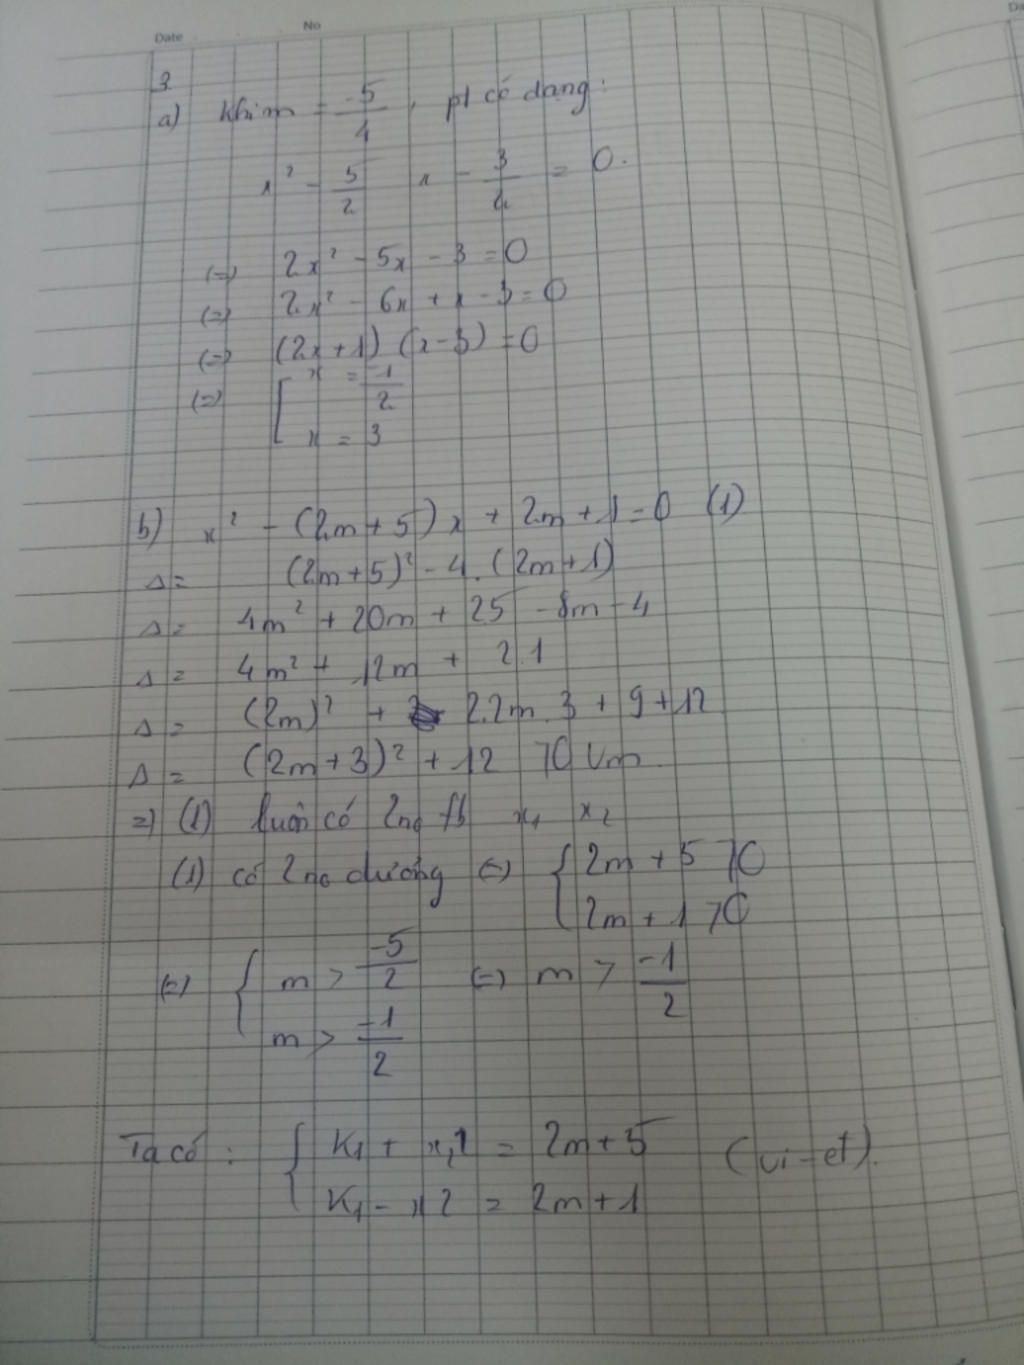 Date No
3
a) Khi m = -5/4, pt có dạng:
x² - 5/2 x - 3/2 = 0.
(=) 2x² - 5x - 3 = 0
(=) 2x² - 6x + x - 3 = 0
(=) (2x+1) (x-3) = 0
(=) [ x = -1/2
x = 3
b) x² - (2m+5)x + 2m+1 = 0 (1)
Δ = (2m+5)² - 4.(2m+1)
Δ = 4m² + 20m + 25 - 8m - 4
Δ = 4m² + 12m + 21
Δ = (2m)² + 2.2m.3 + 9 + 12
Δ = (2m+3)² + 12 > 0 ∀m
=) (1) luôn có 2 no fb x₁ x₂
(1) có 2 no dương (=) { 2m + 5 > 0
2m + 1 > 0
(=) { m > -5/2 (=) m > -1/2
m > -1/2
Ta có: { x₁ + x,2 = 2m+5 (vi-et).
x₁ - x2 = 2m+1